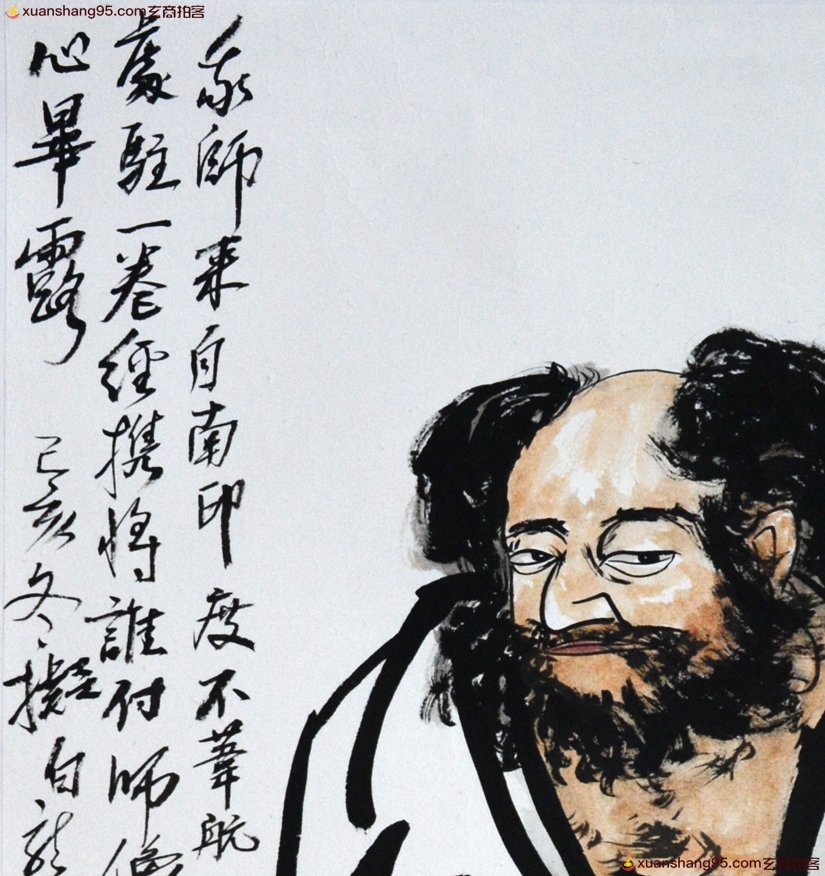 xuanshang95.com玄商拍客
我師来自南印度不葦航
處駐一卷經携將誰付師
心畢露
己亥冬擬白龍
xuanshang95.com玄商拍客